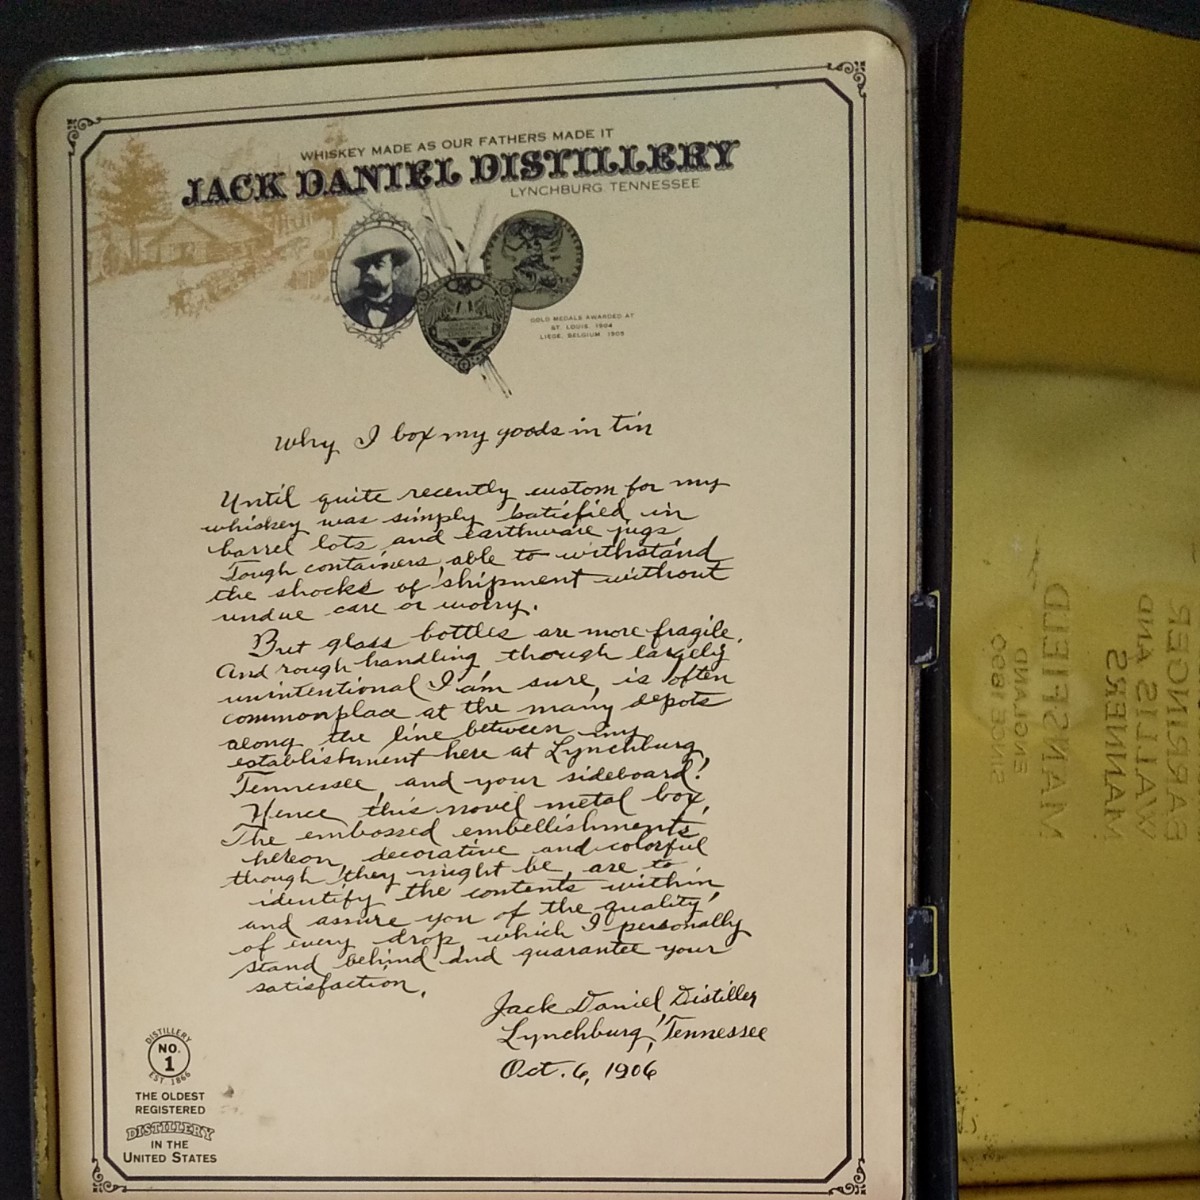 WHISKEY MADE AS OUR FATHERS MADE IT
JACK DANIEL DISTILLERY
LYNCHBURG TENNESSEE
GOLD MEDALS AWARDED AT
ST. LOUIS, 1904
LIEGE, BELGIUM, 1905
Why I box my goods in tin
Until quite recently custom for my
whiskey was simply satisfied in
barrel lots and earthware jugs
Tough containers, able to withstand
the shocks of shipment without
undue care or worry.
But glass bottles are more fragile.
And rough handling, though largely
unintentional I am sure, is often
commonplace at the many depots
along the line between my
establishment here at Lynchburg,
Tennessee, and your sideboard!
Hence this novel metal box,
The embossed embellishments
hereon, decorative and colorful
though they might be, are to
identify the contents within
and assure you of the quality
of every drop, which I personally
stand behind and guarantee your
satisfaction.
Jack Daniel, Distiller
Lynchburg, Tennessee
Oct. 6, 1906
DISTILLERY
NO.
1
EST. 1866
THE OLDEST
REGISTERED
DISTILLERY
IN THE
UNITED STATES
MANNERS
MANSFIELD
ENGLAND